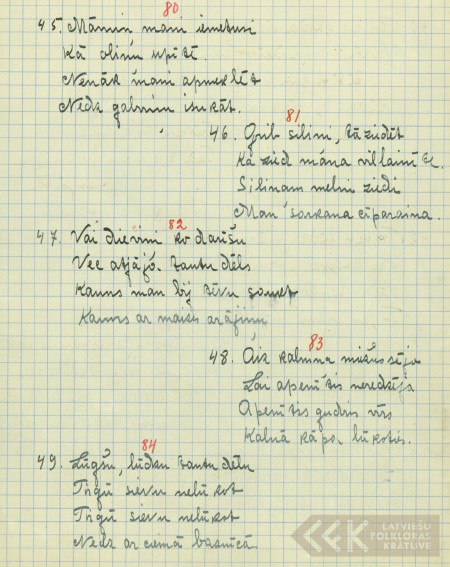 80
45. Māmiņ mani iemetusi
Kā oliņu upītē.
Nenāk mani apmeklēt
Nedz galviņu isukāt.
81
46. Grib siliņi, tā ziedēt
Kā zied māna villainīte.
Siliņam melni ziedi
Man sarkana cīparaina.
82
47. Vai dieviņi ko darīšu
Vec atjājā tautu dēls
Kauns man bij tēvu
Kauns ar maizes arājiņu
83
48. Aiz kalniņa miežus sēja
Lai apenītis neredzēja
Apenītis gudris vīrs
Kalnā kāpa lūkotis.
84
49. Lūgšu, lūdzu tautu dēlu
Tirgū sievu nelūkot
Tirgū sievu nelūkot
Nedz ar ciemā baznīcā.
LATVIEŠU
FOLKLORAS
KRĀTUVE